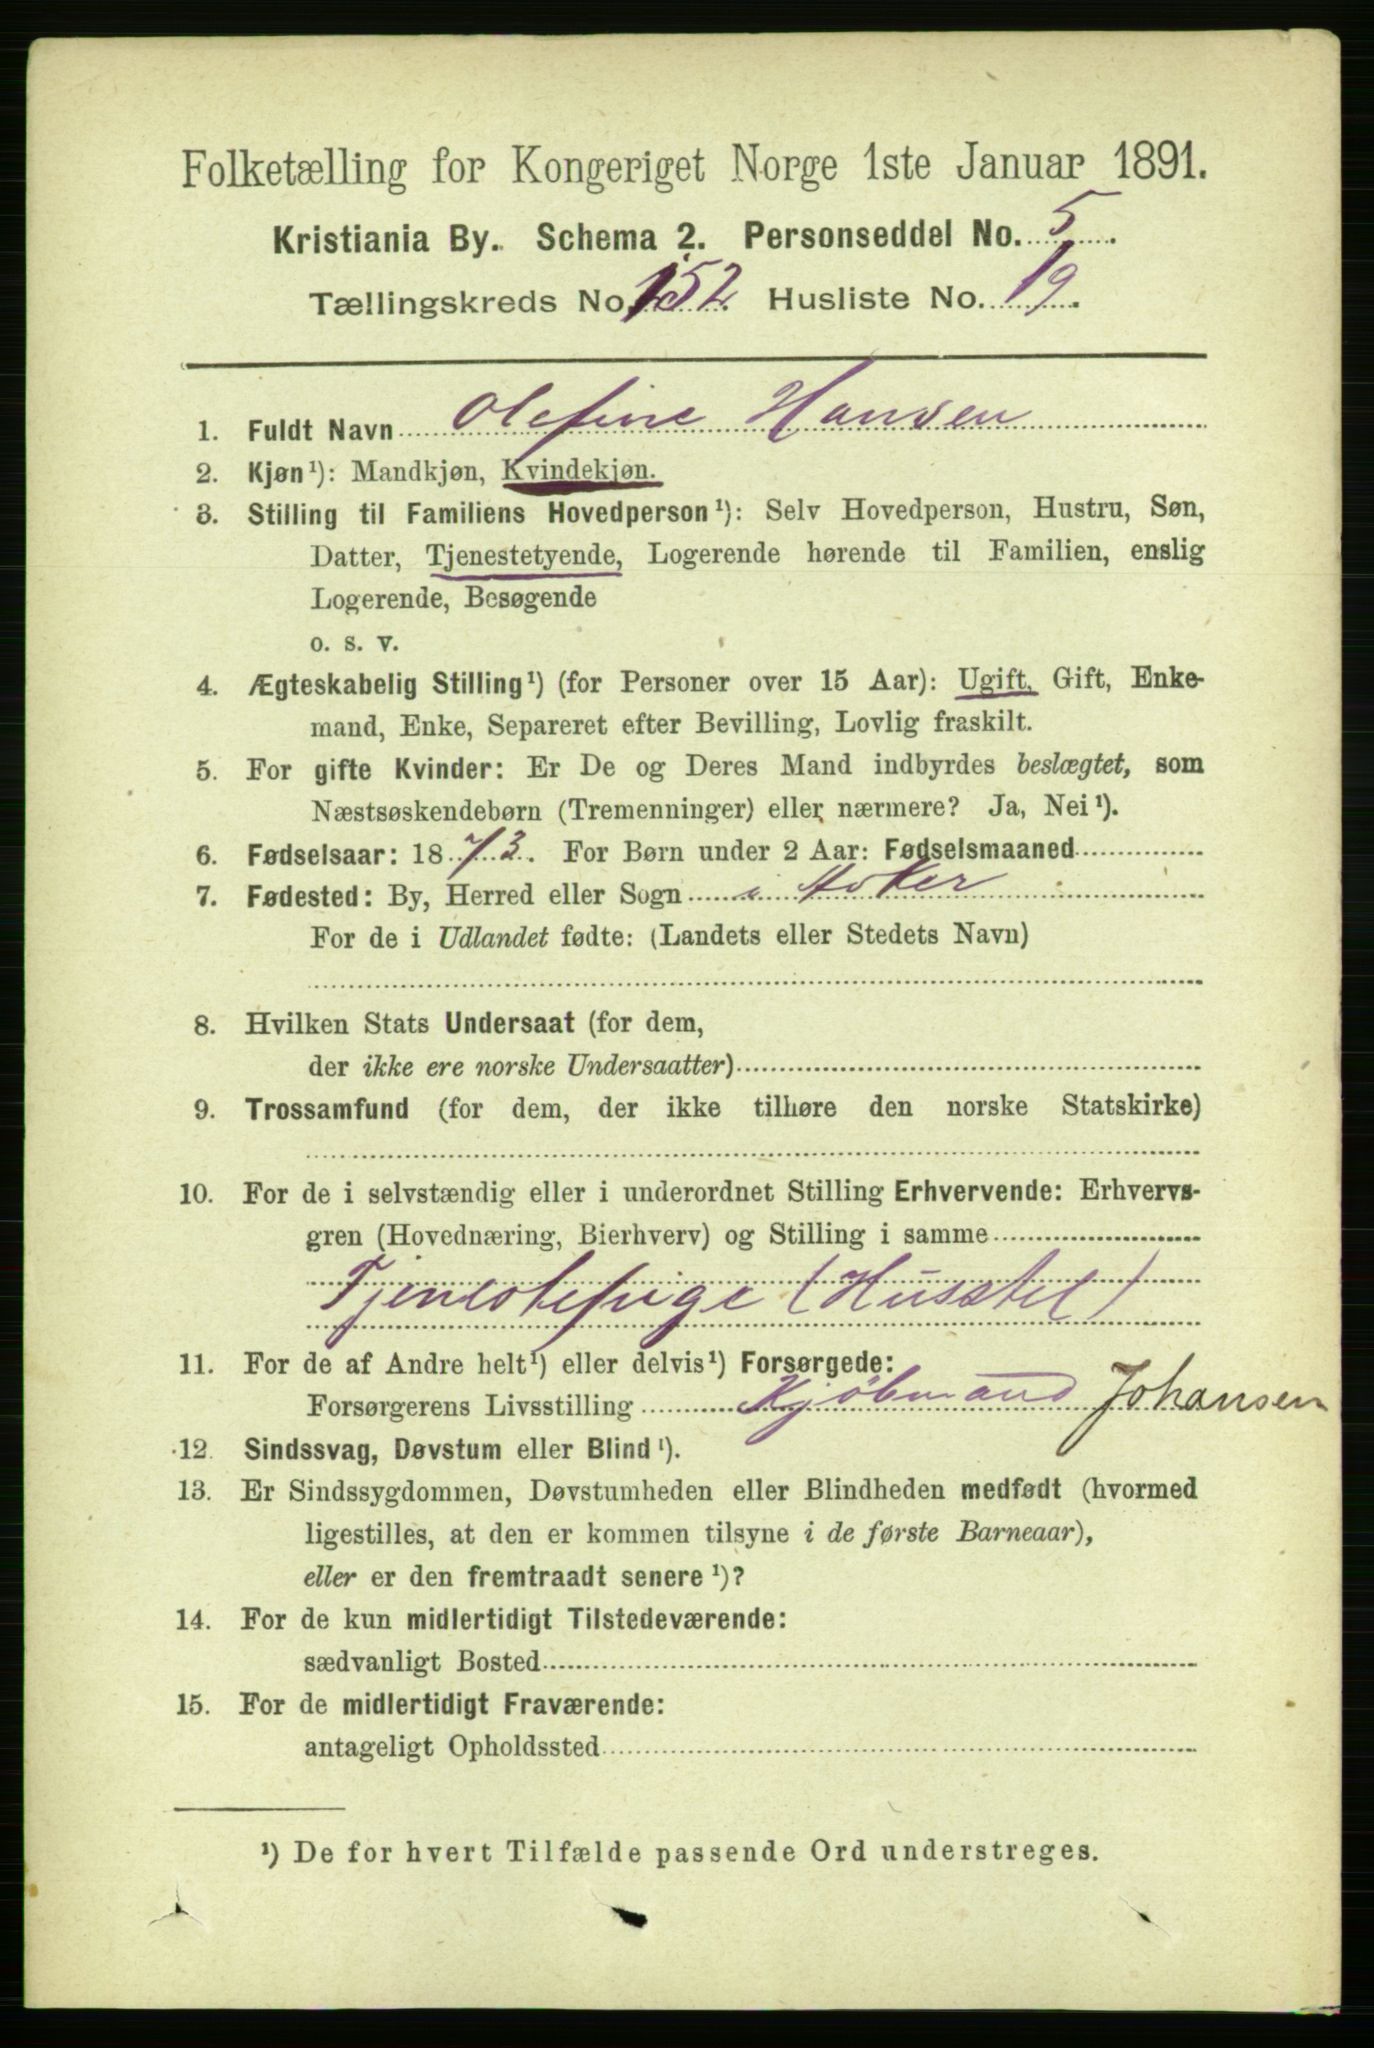 Folketælling for Kongeriget Norge 1ste Januar 1891.
Kristiania By. Schema 2. Personseddel No. 5.
Tællingskreds No. 152. Husliste No. 19.
1. Fuldt Navn Olefine Hansen
2. Kjøn¹): Mandkjøn, Kvindekjøn.
3. Stilling til Familiens Hovedperson¹): Selv Hovedperson, Hustru, Søn,
Datter, Tjenestetyende, Logerende hørende til Familien, enslig
Logerende, Besøgende
o. s. v.
4. Ægteskabelig Stilling¹) (for Personer over 15 Aar): Ugift, Gift, Enke-
mand, Enke, Separeret efter Bevilling, Lovlig fraskilt.
5. For gifte Kvinder: Er De og Deres Mand indbyrdes beslægtet, som
Næstsøskendebørn (Tremenninger) eller nærmere? Ja, Nei¹).
6. Fødselsaar: 1873. For Børn under 2 Aar: Fødselsmaaned
7. Fødested: By, Herred eller Sogn i Aker
For de i Udlandet fødte: (Landets eller Stedets Navn)
8. Hvilken Stats Undersaat (for dem,
der ikke ere norske Undersaatter)
9. Trossamfund (for dem, der ikke tilhøre den norske Statskirke)
10. For de i selvstændig eller i underordnet Stilling Erhvervende: Erhvervs-
gren (Hovednæring, Bierhverv) og Stilling i samme
Tjenestepige (Husstel)
11. For de af Andre helt¹) eller delvis¹) Forsørgede:
Forsørgerens Livsstilling Kjøbmand Johansen
12. Sindssvag, Døvstum eller Blind¹).
13. Er Sindssygdommen, Døvstumheden eller Blindheden medfødt (hvormed
ligestilles, at den er kommen tilsyne i de første Barneaar),
eller er den fremtraadt senere¹)?
14. For de kun midlertidigt Tilstedeværende:
sædvanligt Bosted
15. For de midlertidigt Fraværende:
antageligt Opholdssted
¹) De for hvert Tilfælde passende Ord understreges.